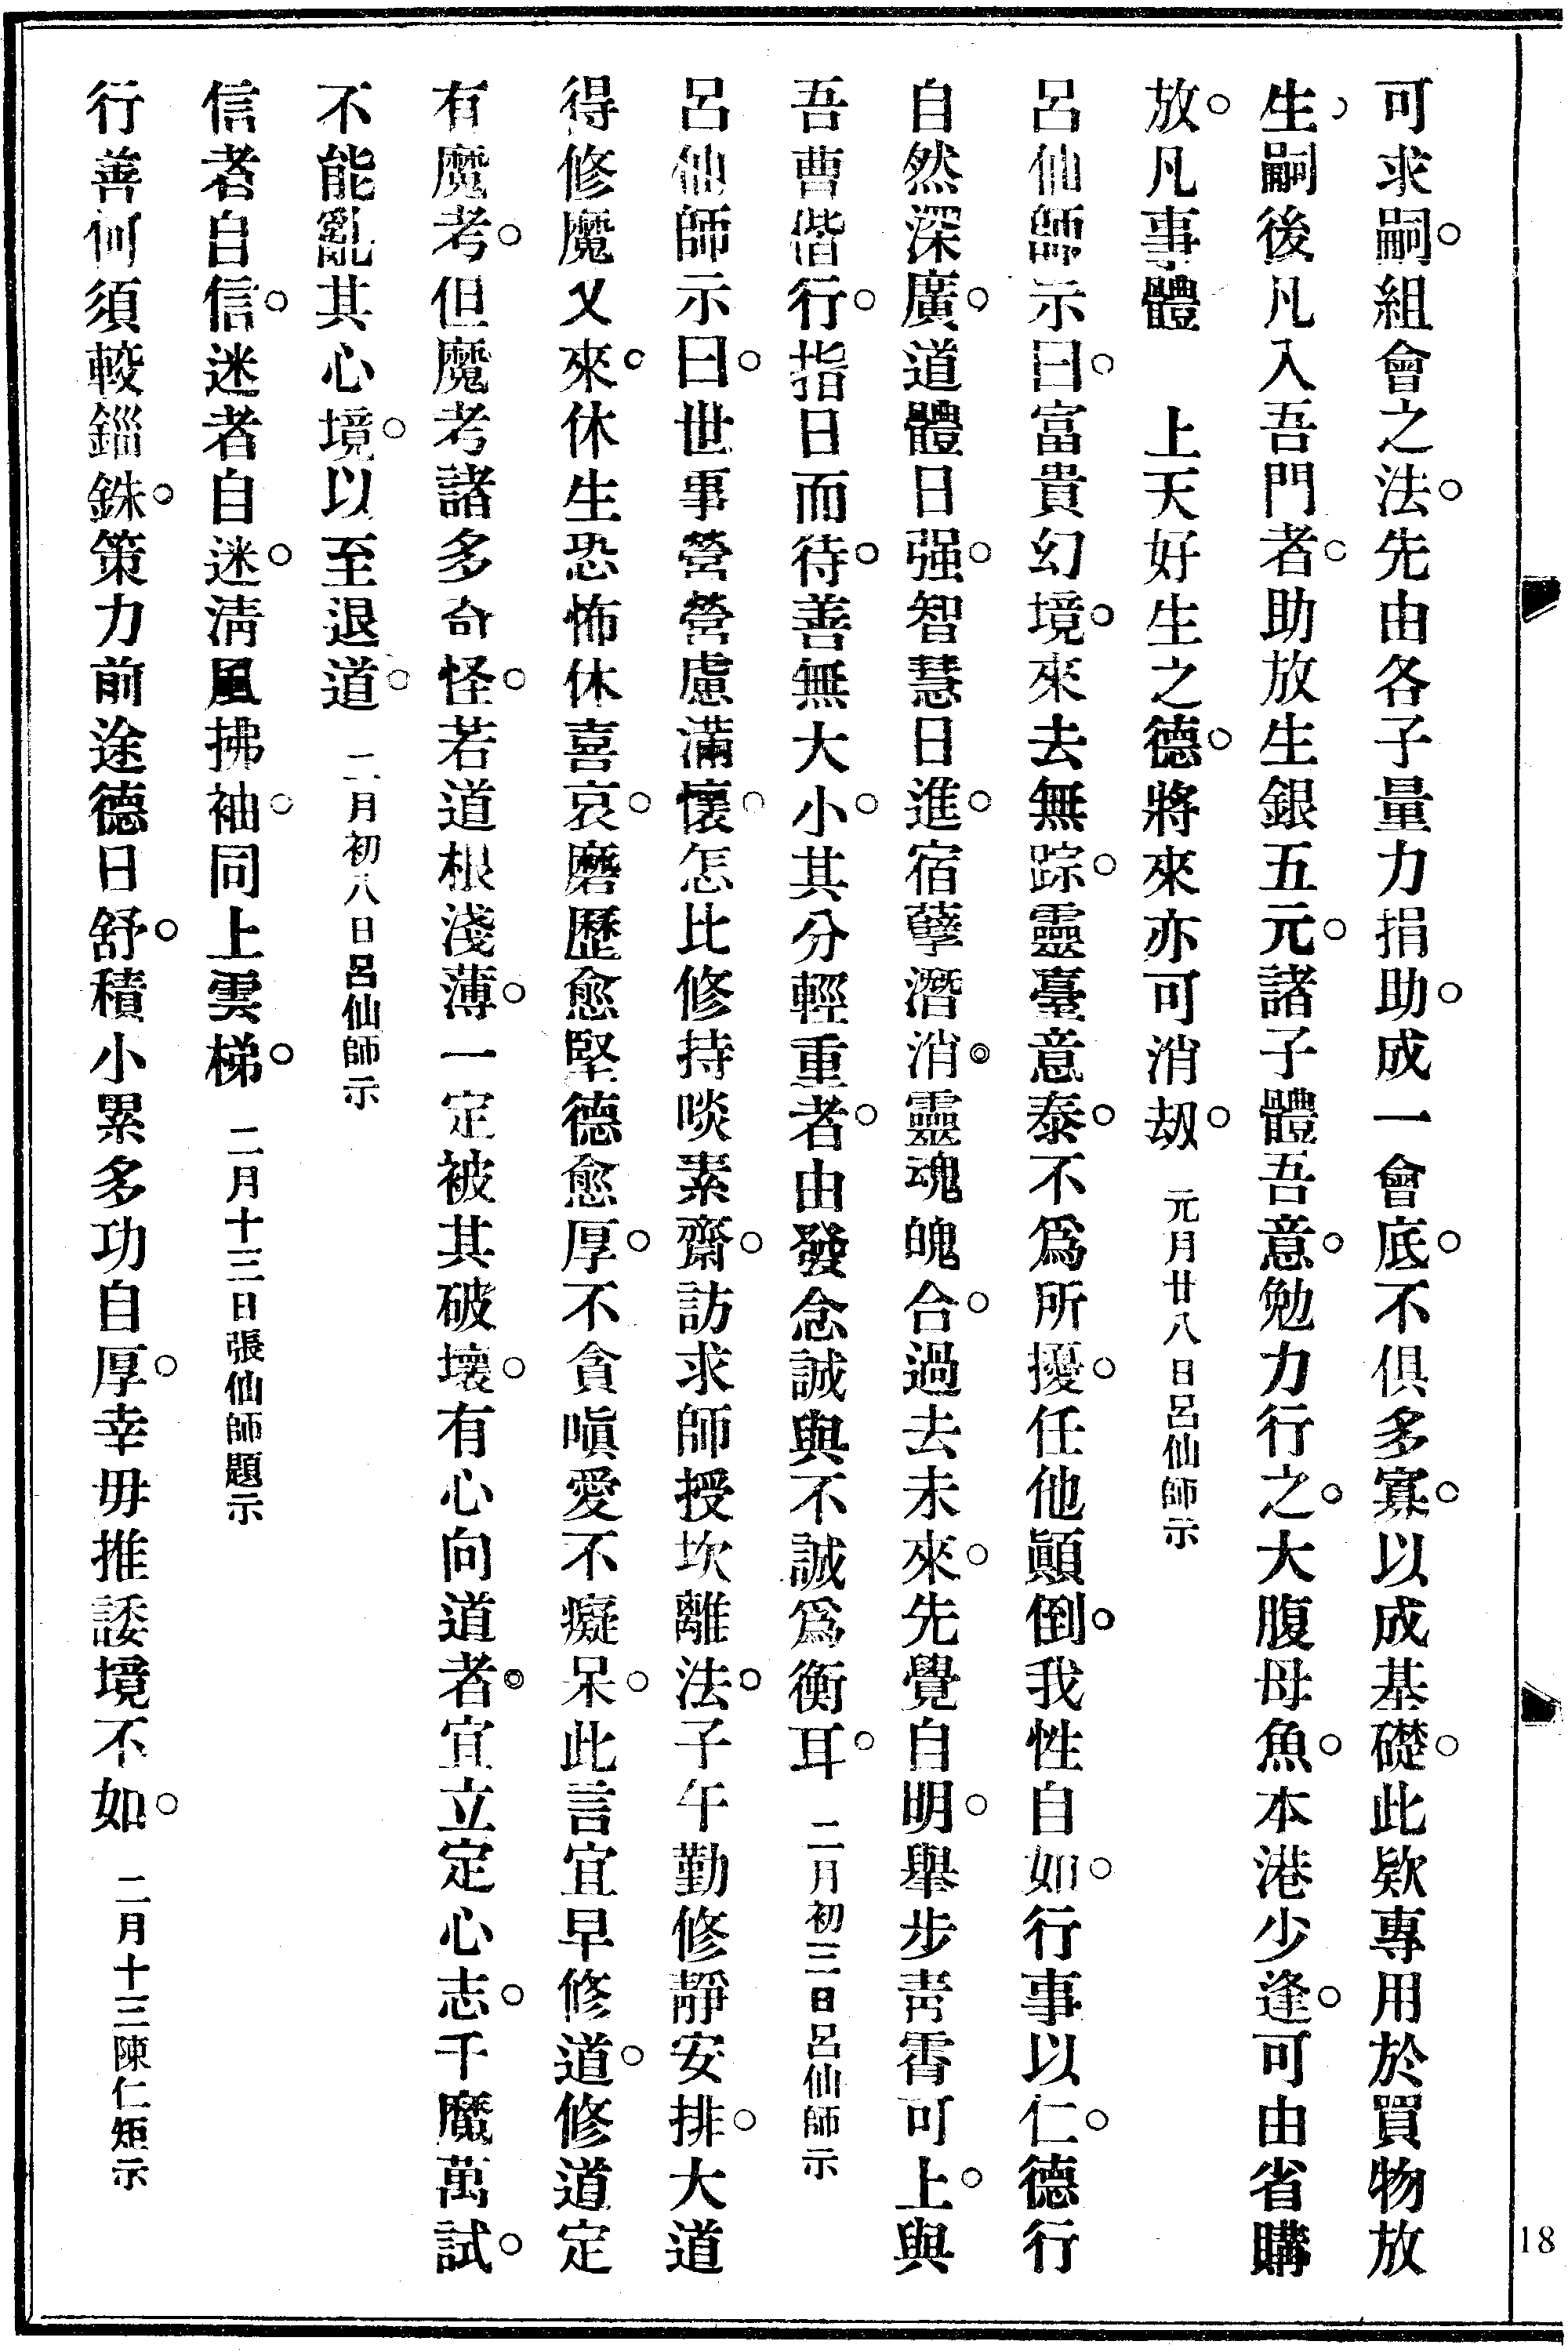 可求嗣。組會之法。先由各子量力捐助。成一會底。不俱多寡。以成基礎。此欵專用於買物放
生。嗣後凡入吾門者。助放生銀五元。諸子體吾意。勉力行之。大腹母魚。本港少逢。可由省購
放。凡事體　上天好生之德。將來亦可消刼。　元月廿八日呂仙師示
呂仙師示曰。富貴幻境。來去無踪。靈臺意泰。不爲所擾。任他顚倒。我性自如。行事以仁。德行
自然深廣。道體日强。智慧日進。宿孽潛消。靈魂魄合。過去未來。先覺自明。舉步靑霄可上。與
吾曹偕行。指日而待。善無大小。其分輕重者。由發念誠與不誠爲衡耳。　二月初三日呂仙師示
呂仙師示曰。世事營營慮滿懷。怎比修持啖素齋。訪求師授坎離法。子午勤修靜安排。大道
得修魔又來。休生恐怖休喜哀。磨歷愈堅德愈厚。不貪嗔愛不癡呆。此言宜早修道。修道定
有魔考。但魔考諸多奇怪。若道根淺薄。一定被其破壞。有心向道者。宜立定心志。千魔萬試。
不能亂其心境。以至退道。　二月初八日呂仙師示
信者自信。迷者自迷。淸風拂袖。同上雲梯。　二月十三日張仙師題示
行善何須較錙銖。策力前途德日舒。積小累多功自厚。幸毋推諉境不如。　二月十三陳仁矩示
18